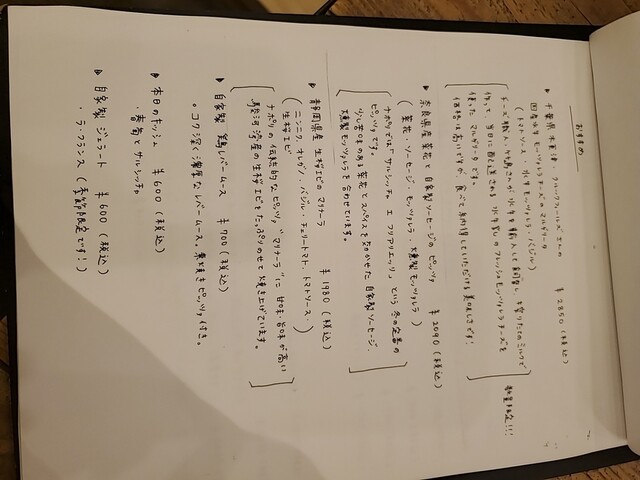 おすすめ
▶ 千葉県 木更津 クルックフィールズさんの
国産水牛モッツァレラチーズのマルゲリータ ¥2850(税込)
(トマトソース、水牛モッツァレラ、バジル)
チーズ職人 竹島さんが水牛を輸入して飼育し、手搾りたてのミルクで
作って、当日に配送される水牛製のフレッシュモッツァレラチーズを
使ったマルゲリータです。
価格は高いですが、食べて納得していただける美味しさです! 数量限定!!!
▶ 奈良県産 菜花と自家製ソーセージのピッツァ ¥2090(税込)
(菜花、ソーセージ、モッツァレラ、燻製モッツァレラ)
ナポリでは"サルシッチャ エ フリアリエッリ"という冬の定番の
ピッツァです。
少し苦味のある菜花とスパイスをきかせた自家製ソーセージ、
燻製モッツァレラを合わせています。
▶ 静岡県産 生桜エビのマリナーラ ¥1980(税込)
(ニンニク、オレガノ、バジル、チェリートマト、トマトソース、
生桜エビ)
ナポリの伝統的なピッツァ"マリナーラ"に甘味、旨味が高い
駿河湾産の生桜エビをたっぷりのせて焼き上げています。
▶ 自家製 鶏レバームース ¥700(税込)
・コク深く濃厚なレバームース。薪焼きピッツァ付き。
▶ 本日のキッシュ ¥600(税込)
・春菊とサルシッチャ
▶ 自家製ジェラート ¥600(税込)
・ラ・フランス(季節限定です!)